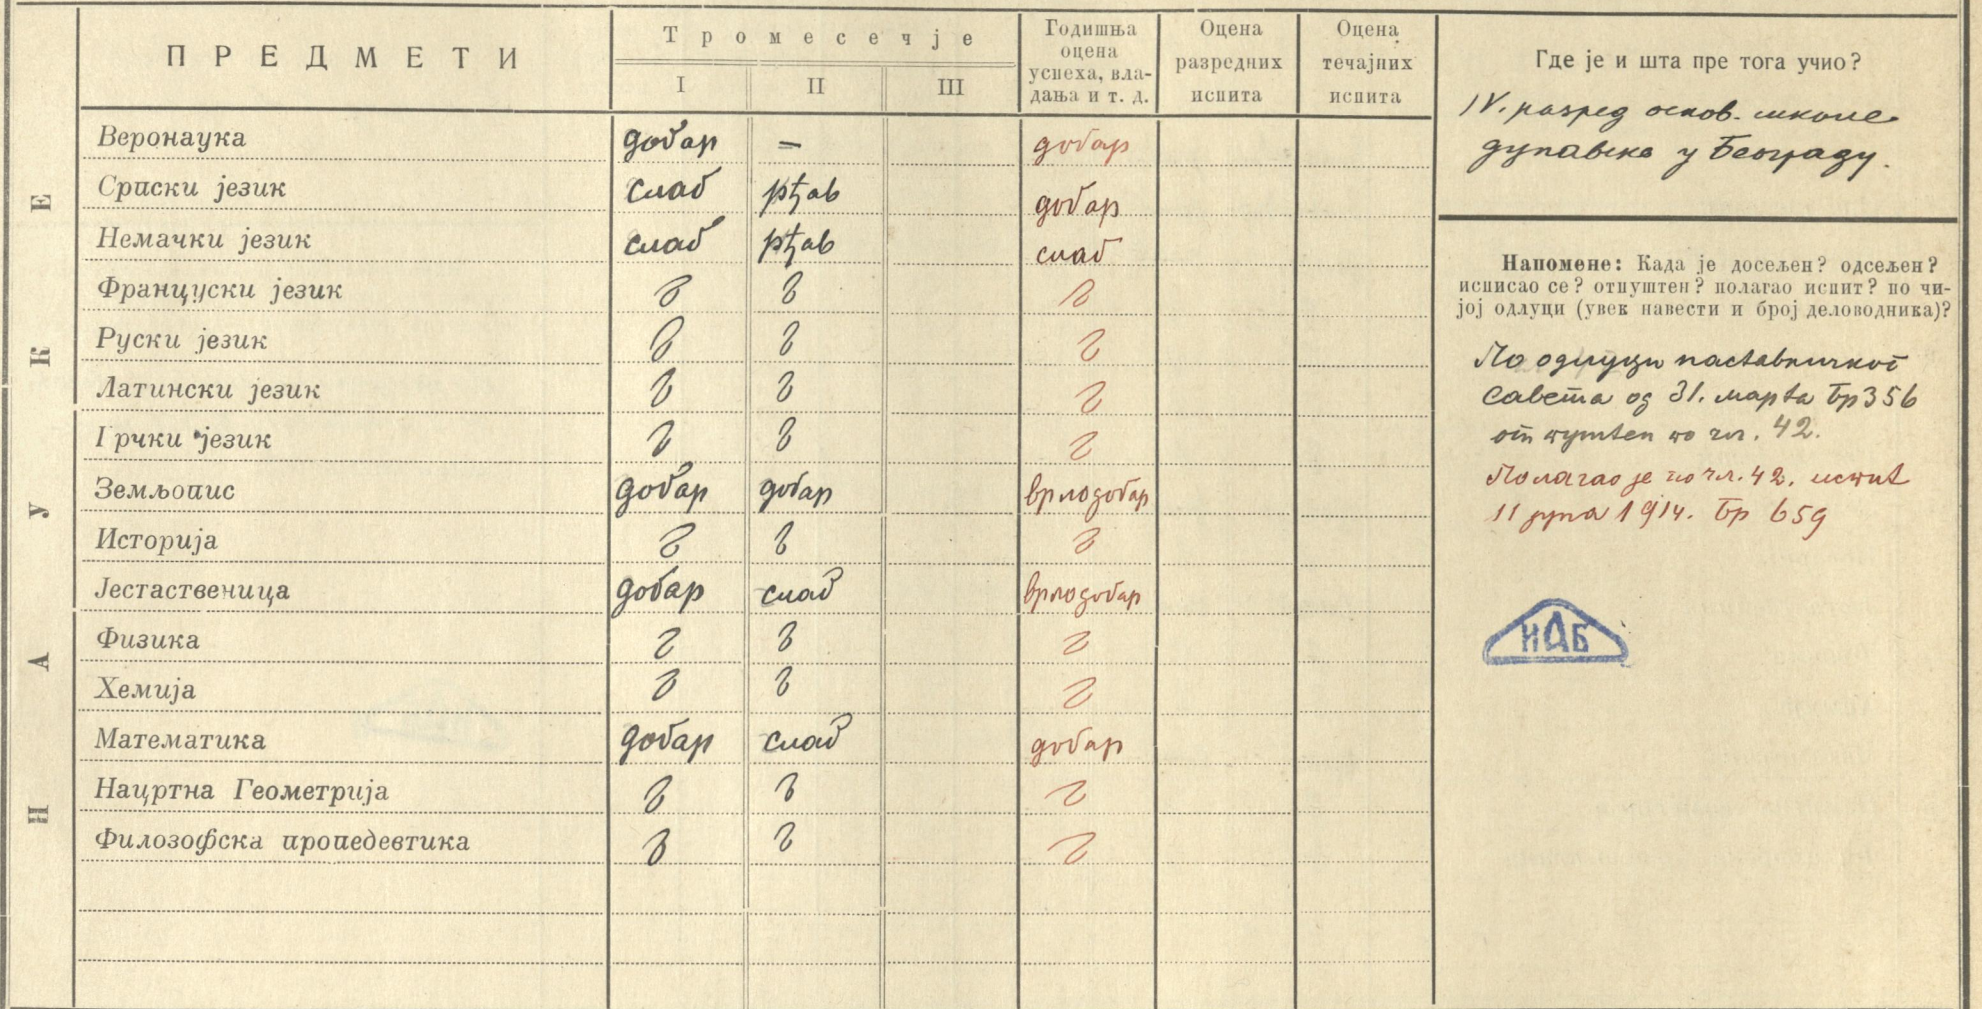 НАУКЕ
ПРЕДМЕТИ Тромесечје Годишња оцена успеха, вла- дања и т. д. Оцена разредних испита Оцена течајних испита
I II III
Веронаука добар — добар
Српски језик слаб рђав добар
Немачки језик слаб рђав слаб
Француски језик
Руски језик
Латински језик
Грчки језик
Земљопис добар добар врлодобар
Историја
Јестаственица добар слаб врлодобар
Физика
Хемија
Математика добар слаб добар
Нацртна Геометрија
Филозофска пропедевтика
Где је и шта пре тога учио?
IV. разред основ. школе
дунавске у Београду.
Напомене: Када је досељен? одсељен?
исписао се? отпуштен? полагао испит? по чи-
јој одлуци (увек навести и број деловодника)?
По одлуци наставничког
савета од 31. марта Бр 356
отпуштен по чл. 42.
Полагао је по чл. 42. испит
11 јуна 1914. Бр 659
ИАБ